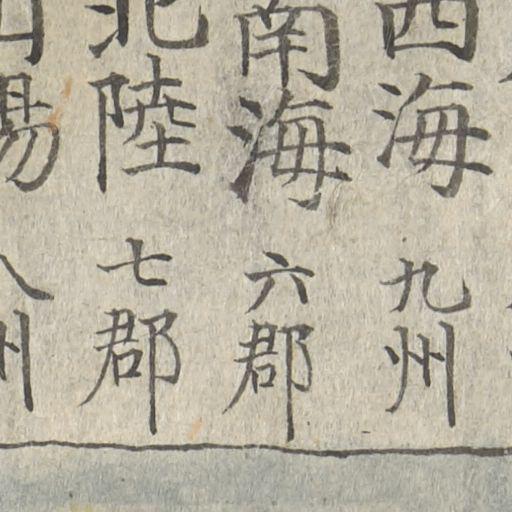 西海 九州
南海 六郡
北陸 七郡
山陽 八州